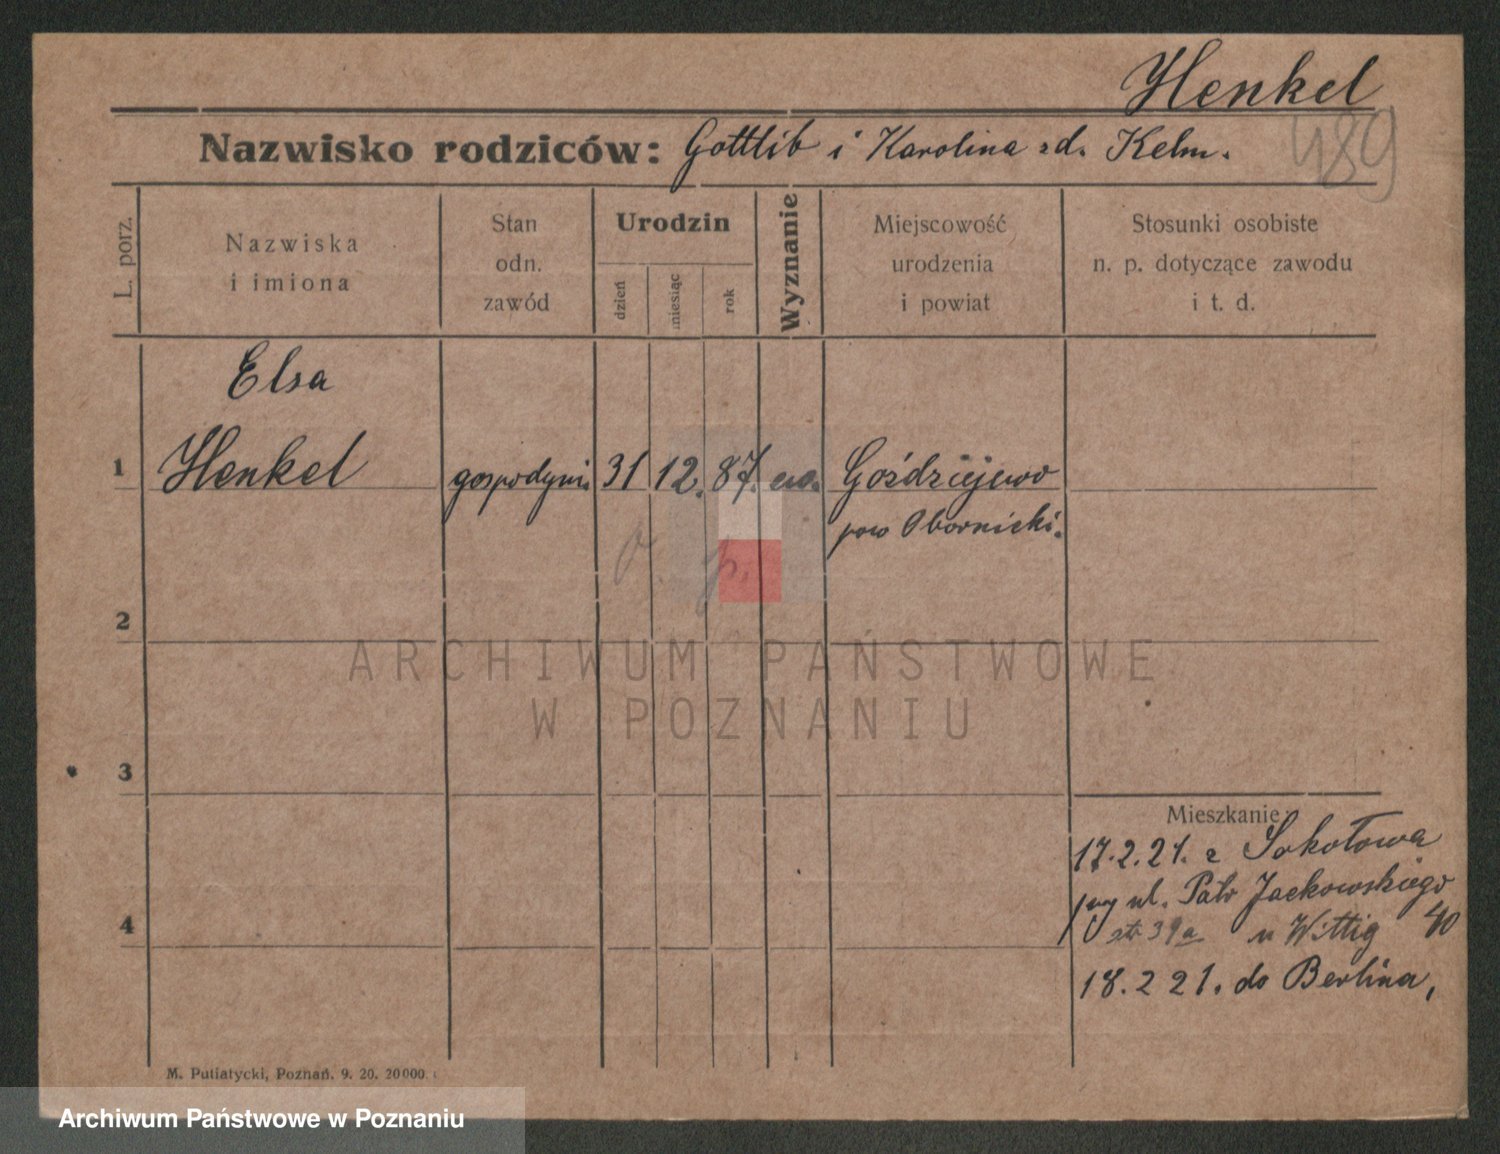 Henkel
489
Nazwisko rodziców: Gottlib i Karolina zd. Kelm.
L. porz.
Nazwiska
i imiona
Stan
odn.
zawód
Urodzin
dzień
miesiąc
rok
Wyznanie
Miejscowość
urodzenia
i powiat
Stosunki osobiste
n. p. dotyczące zawodu
i t. d.
Elsa
1 Henkel gospodyni. 31 12. 87. ew. Goździejewo
pow Obornicki.
2
ARCHIWUM PAŃSTWOWE
W POZNANIU
3
Mieszkanie:
17.2.21. z Sokołowa
ul. Patr Jackowskiego
39a u Wittig 40
4
18. 2 21. do Berlina,
M. Putiatycki, Poznań. 9. 20. 20000.
Archiwum Państwowe w Poznaniu